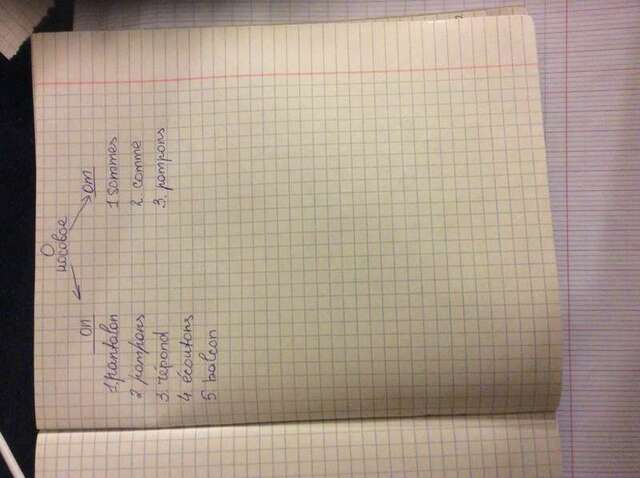 О
носовое
on
om
1 pantalon
2 pompons
3. répond
4 écoutons
5. balcon
1 sommes
2. comme
3. pompons